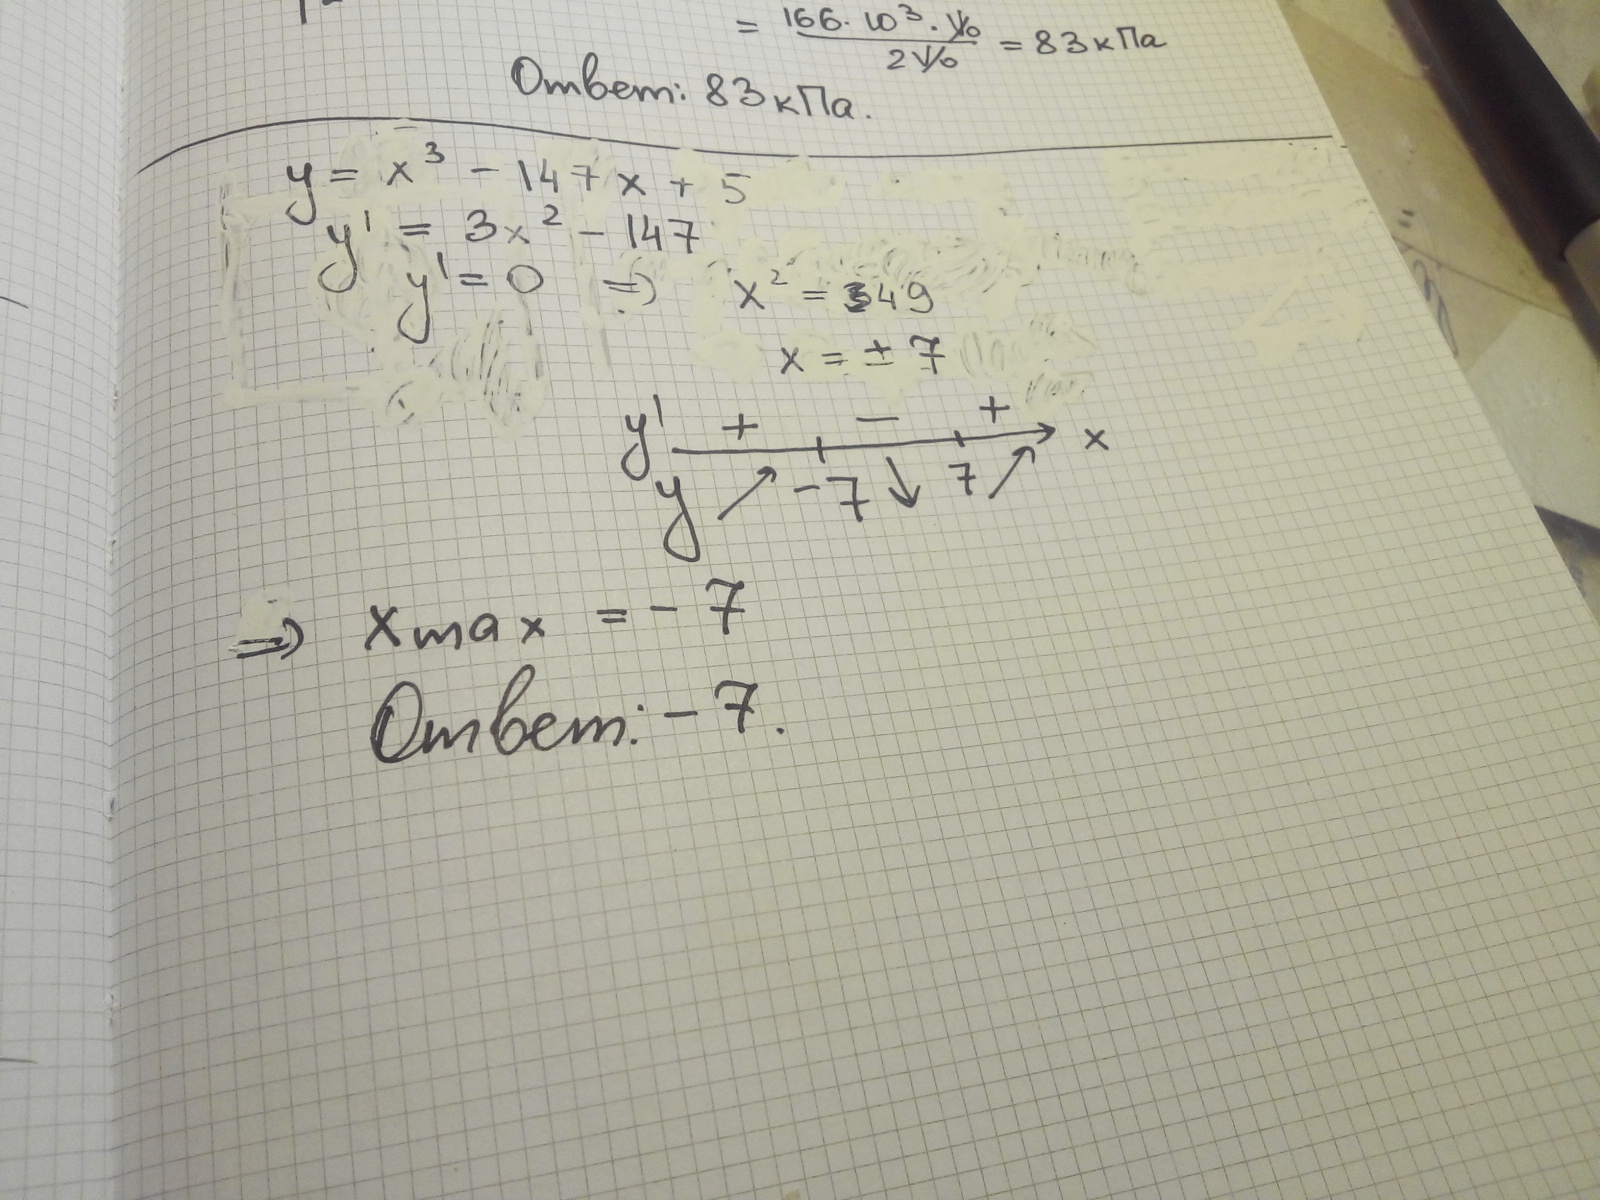 = 166·10³·V₀ / 2V₀ = 83 кПа
Ответ: 83 кПа.
y = x³ - 147x + 5
y' = 3x² - 147
y' = 0 => x² = 49
x = ± 7
y' + - + x
y ↗ -7 ↘ 7 ↗
=> xmax = -7
Ответ: -7.